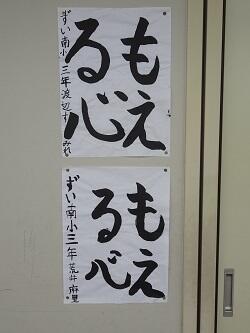 もえ
る心
ずい南小三年渡辺すみれ
もえ
る心
ずい南小三年荒井麻里